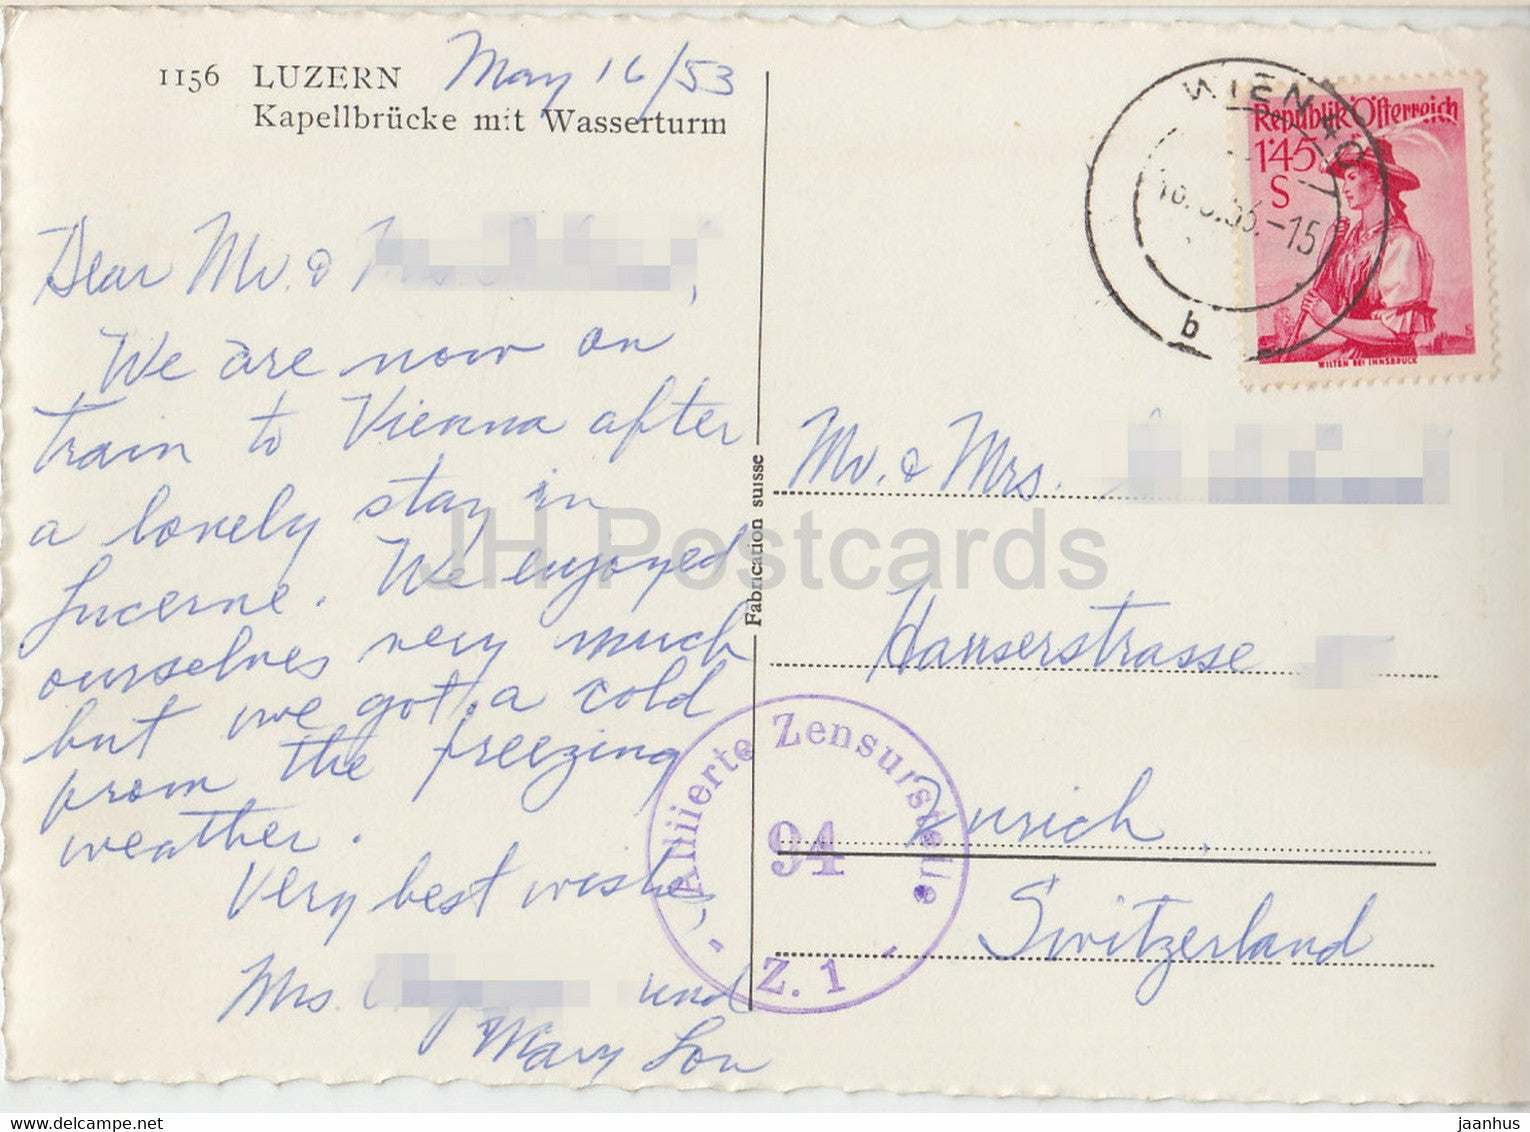 1156 LUZERN May 16/53
Kapellbrücke mit Wasserturm
Dear Mr. &
We are now on
train to Vienna after
a lovely stay in
Lucerne. We enjoyed
ourselves very much
but we got a cold
from the freezing
weather.
Very best wishes,
Mrs. und
Mary Lou
Fabrication suisse
WIEN
b
Republik Österreich
1·45
S
WILTEN BEI INNSBRUCK
Mr. & Mrs.
Hauserstrasse
Zurich,
Switzerland
Alliierte Zensurstelle
94
Z. 1
JH Postcards
www.delcampe.net
jaanhus